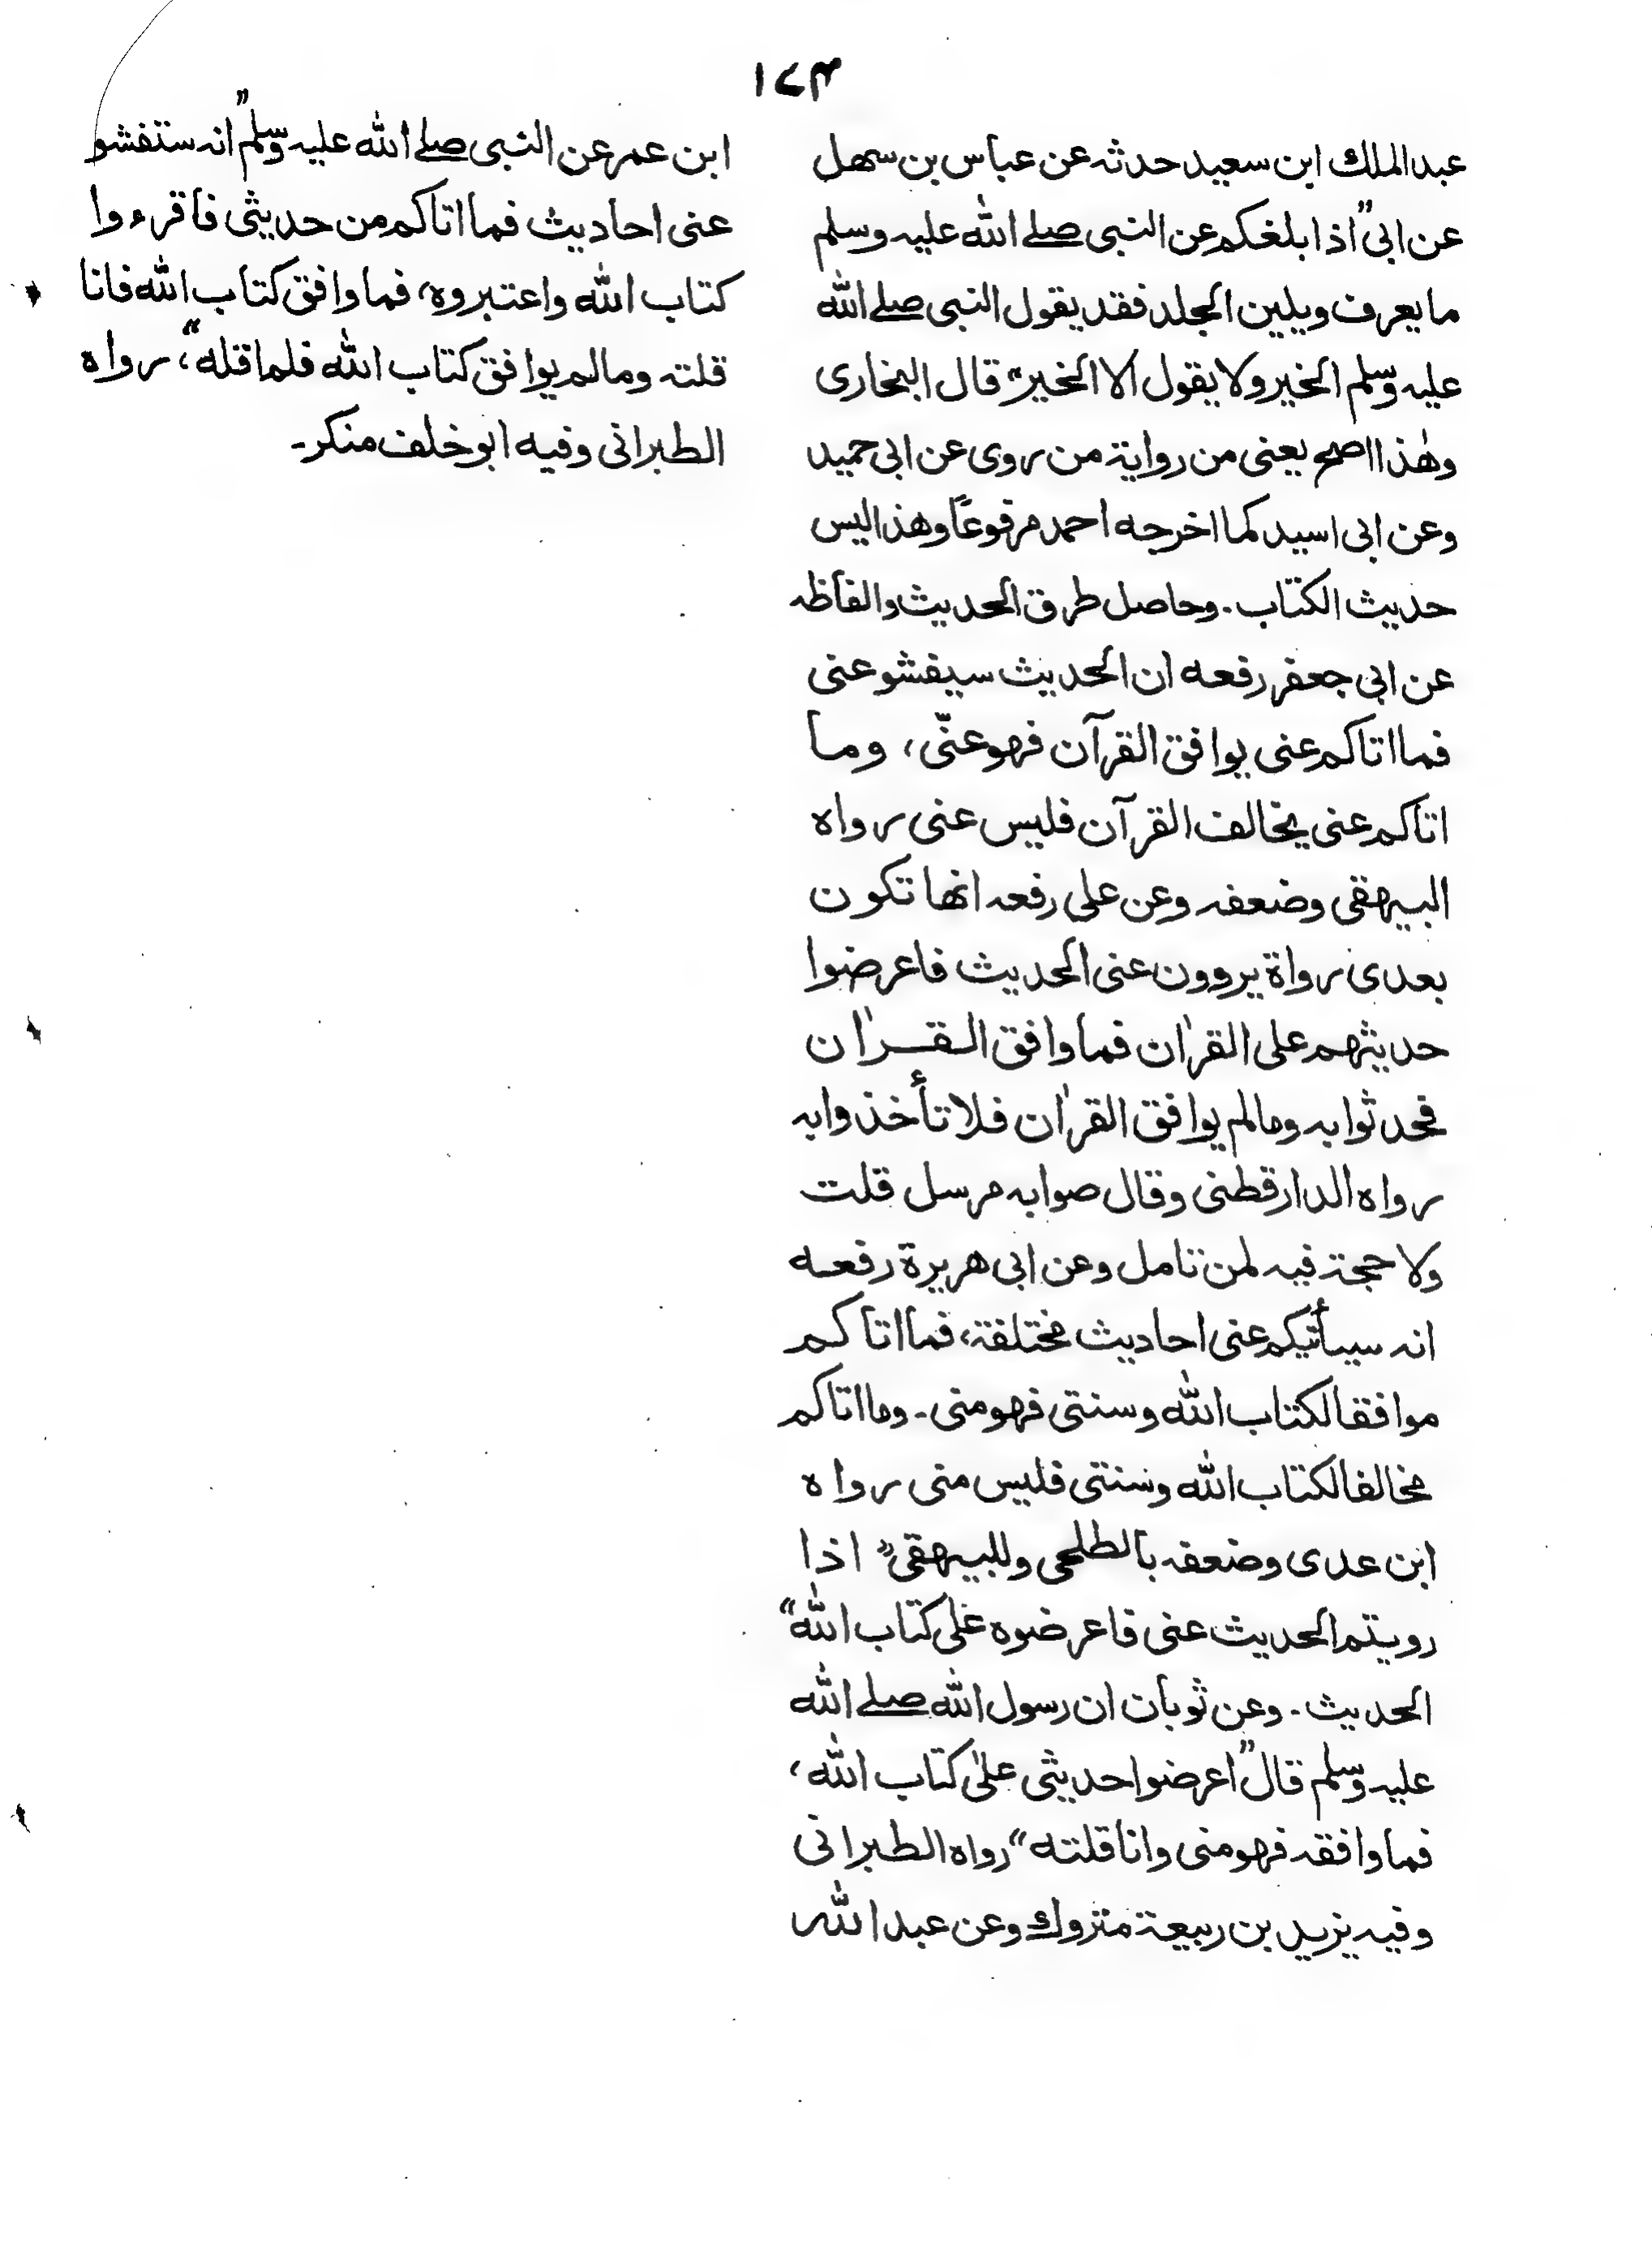 ۱۷۳
عبدالملك ابن سعيد حدثه عن عباس بن سهل
عن ابی "اذا بلغكم عن النبی صلے الله عليه وسلم
ما يعرف ويلين الجلد فقد يقول النبی صلے الله
عليه وسلم الخير ولا يقول الا الخير" قال البخاری
وهٰذا اصح يعنی من رواية من روی عن ابی حميد
وعن ابی اسيد كما اخرجه احمد مرفوعًا وهذا ليس
حديث الكتاب۔ وحاصل طرق الحديث والفاظه
عن ابی جعفر رفعه ان الحديث سيفشو عنی
فما اتاكم عنی يوافق القرآن فهو عنّی، وما
اتاكم عنی يخالف القرآن فليس عنی رواه
البيهقی وضعفه وعن علی رفعه انها تكون
بعدی رواة يروون عنی الحديث فاعرضوا
حديثهم علی القرٰان فما وافق القرٰان
فحدثوا به ومالم يوافق القرٰان فلا تأخذوا به
رواه الدارقطنی وقال صوابه مرسل قلت
ولا حجة فيه لمن تامل وعن ابی هريرة رفعه
انه سيأتيكم عنی احاديث مختلفة، فما اتاكم
موافقا لكتاب الله وسنتی فهو منی۔ وما اتاكم
مخالفا لكتاب الله وسنتی فليس منی رواه
ابن عدی وضعفه بالطلحی وللبيهقی" اذا
رويتم الحديث عنی فاعرضوه علی كتاب الله"
الحديث۔ وعن ثوبان ان رسول الله صلے الله
عليه وسلم قال "اعرضوا حديثی علیٰ كتاب الله،
فما وافقه فهو منی وانا قلته" رواه الطبرانی
وفيه يزيد بن ربيعة متروك وعن عبدالله
ابن عمر عن النبی صلے الله عليه وسلم "انه ستفشو
عنی احاديث فما اتاكم من حديثی فاقرءوا
كتاب الله واعتبروه، فما وافق كتاب الله فانا
قلته ومالم يوافق كتاب الله فلم اقله"، رواه
الطبرانی وفيه ابوخلف منكر۔